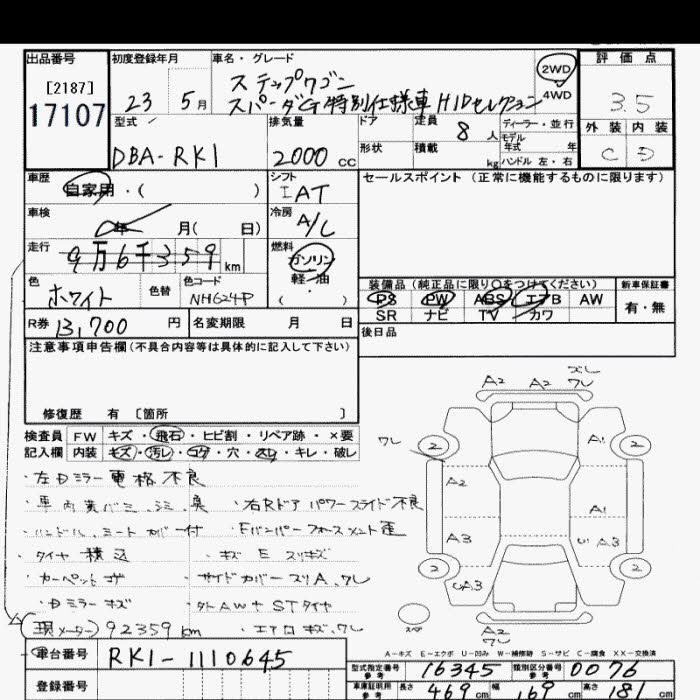 出品番号 初度登録年月 車名・グレード 評価点
[2187] ステップワゴン 2WD
17107 23 5月 スパーダG特別仕様車HIDセレクション 4WD 3.5
型式 排気量 ドア 定員 8人 ディーラー・並行 外装 内装
モデル年式 年
DBA-RK1 2000cc 形状 積載 kg ハンドル 左・右 C D
車歴 自家用・( ) シフト IAT セールスポイント(正常に機能するものに限ります)
車検 年 月( 日) 冷房 A/C
走行 9万6千359km 燃料 ガソリン・軽油・( )
色 ホワイト 色替 色コード NH624P
装備品(純正品に限り〇をつけてください) 新車保証書
PS PW ABS エアB AW 有・無
SR ナビ TV カワ
R券 13,700円 名変期限 月 日 後日品
注意事項申告欄(不具合内容等は具体的に記入して下さい)
修復歴 有 〔箇所 〕
検査員 FW キズ・飛石・ヒビ割・リペア跡・×要
記入欄 内装 キズ・汚レ・コゲ・穴・スレ・キレ・破レ
・左Dミラー電格不良
・車内 臭 ・右Rドアパワースライド不良
・ハンドル、シートカバー付 ・Eバンパーフォースメント歪
・タイヤ積込 ・キズE スリキズ
・カーペットコゲ ・サイドカバースリA、ワレ
・Dミラーキズ ・タトAW+STタイヤ
現メーター)92359km ・エアロキズ、ワレ
A2 A2 ワレ
ワレ 2 A1 2
A2 A1
A3 A3
2 A3 2
スペア A2 ワレ
A-キズ E-エクボ U-凹み W-補修跡 S-サビ C-腐食 XX-交換済
車台番号 RK1-1110645 型式指定番号 参考 16345 類別区分番号 参考 0076
登録番号 車庫証明用 参考 長さ 469cm 幅 169cm 高さ 181cm